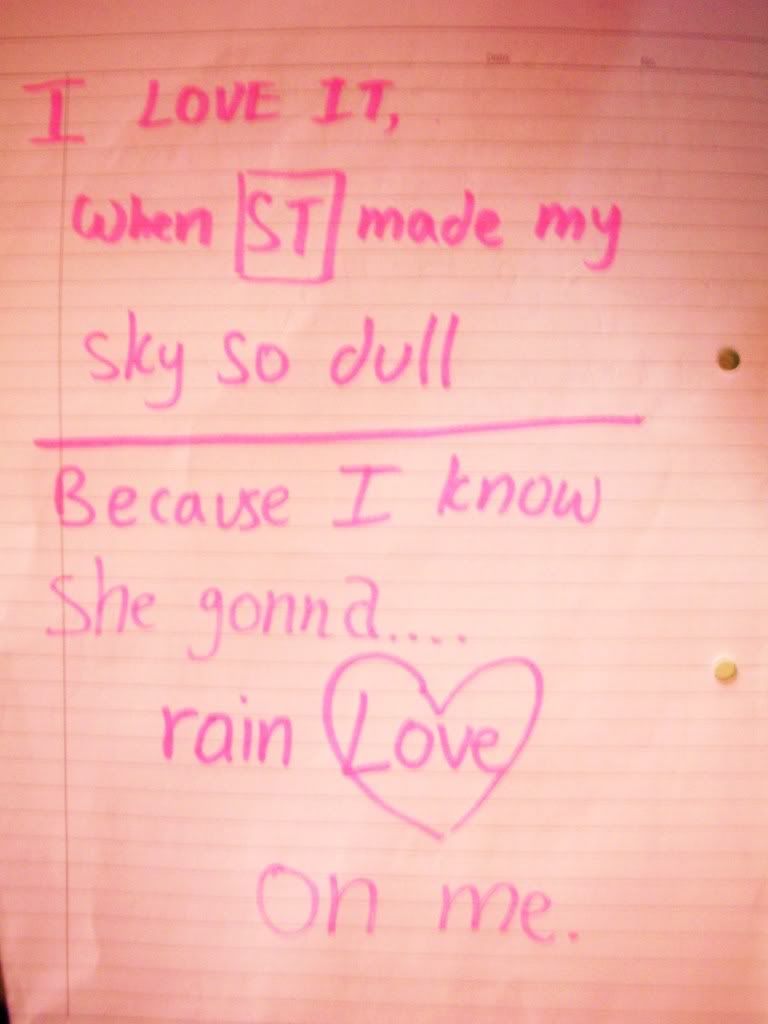 Date No.
I LOVE IT,
When ST made my
sky so dull
Because I know
She gonna....
rain Love
On me.